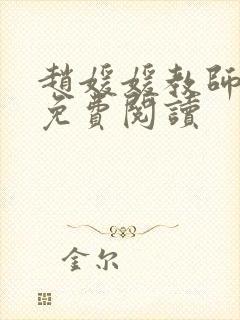 趙媛媛教師
免費閱讀
金尔